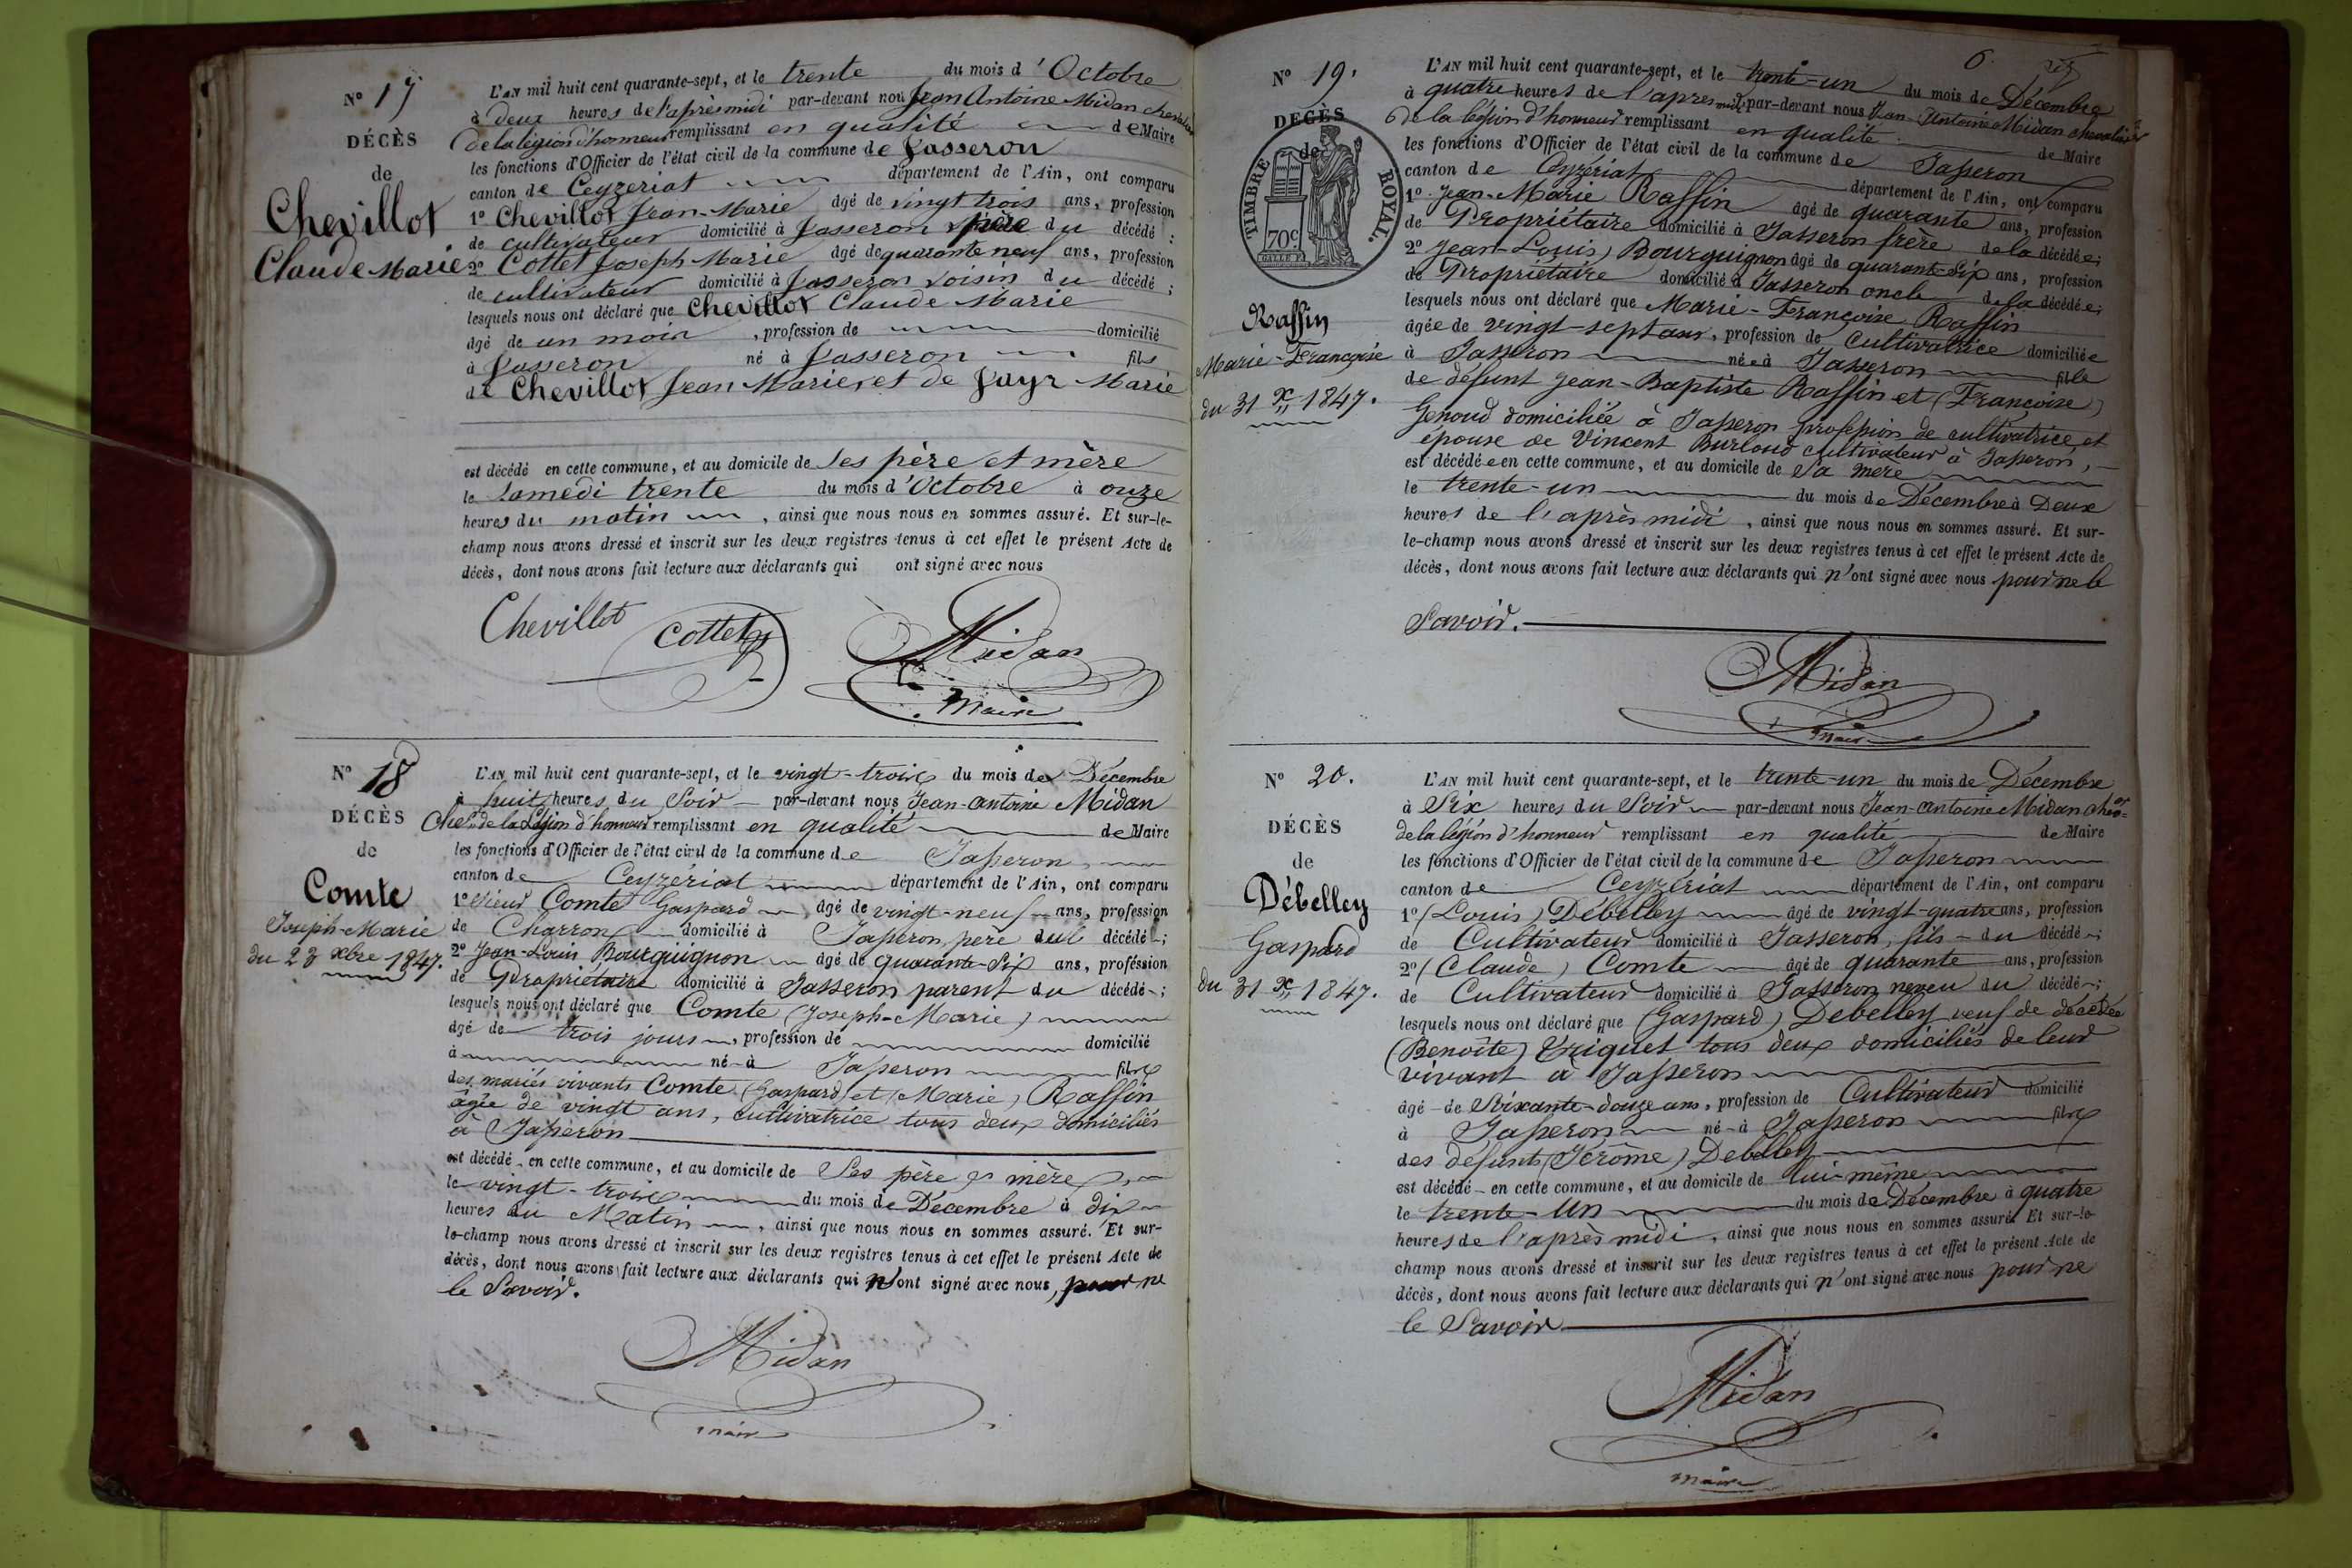 N° 17
DÉCÈS
de
Chevillot
Claude Marie
L'AN mil huit cent quarante-sept, et le trente du mois d'Octobre
à deux heures de l'après midi par-devant nous Jean Antoine Midan chevalier
de la légion d'honneur remplissant en qualité de Maire
les fonctions d'Officier de l'état civil de la commune de Jasseron
canton de Ceyzeriat département de l'Ain, ont comparu
1° Chevillot Jean-Marie âgé de vingt trois ans, profession
de cultivateur domicilié à Jasseron père du décédé ;
2° Cottet Joseph Marie âgé de quarante neuf ans, profession
de cultivateur domicilié à Jasseron voisin du décédé ;
lesquels nous ont déclaré que Chevillot Claude Marie
âgé de un mois, profession de domicilié
à Jasseron né à Jasseron fils
de Chevillot Jean Marie et de Marie
est décédé en cette commune, et au domicile de ses père et mère
le samedi trente du mois d'Octobre à onze
heures du matin, ainsi que nous nous en sommes assuré. Et sur-le-
champ nous avons dressé et inscrit sur les deux registres tenus à cet effet le présent Acte de
décès, dont nous avons fait lecture aux déclarants qui ont signé avec nous
Chevillot Cottet Midan
Maire
N° 18
DÉCÈS
de
Comte
Joseph-Marie
du 23 xbre 1847.
L'AN mil huit cent quarante-sept, et le vingt-trois du mois de Décembre
à huit heures du Soir par-devant nous Jean-Antoine Midan
Cher de la Légion d'honneur remplissant en qualité de Maire
les fonctions d'Officier de l'état civil de la commune de Jasseron,
canton de Ceyzeriat département de l'Ain, ont comparu
1° Sieur Comte Gaspard, âgé de vingt-neuf ans, profession
de Charron domicilié à Jasseron, père dud. décédé ;
2° Jean-Louis Bourguignon âgé de quarante-Six ans, profession
de Propriétaire domicilié à Jasseron parent du décédé ;
lesquels nous ont déclaré que Comte (Joseph-Marie)
âgé de trois jours, profession de domicilié
à né à Jasseron fils
des mariés vivants Comte (Gaspard) et (Marie) Raffin
âgée de vingt ans, cultivatrice tous deux domiciliés
à Jasseron
est décédé en cette commune, et au domicile de Ses père & mère,
le vingt-trois du mois de Décembre à dix
heures du Matin, ainsi que nous nous en sommes assuré. Et sur-
le-champ nous avons dressé et inscrit sur les deux registres tenus à cet effet le présent Acte de
décès, dont nous avons fait lecture aux déclarants qui n'ont signé avec nous, pour ne
le Savoir.
Midan
maire
6.
N° 19.
DÉCÈS
de
TIMBRE ROYAL.
70c
Raffin
Marie-Françoise
du 31 x 1847.
L'AN mil huit cent quarante-sept, et le trente-un du mois de Décembre
à quatre heures de l'après midi par-devant nous Jean-Antoine Midan chevalier
de la légion d'honneur remplissant en qualité de Maire
les fonctions d'Officier de l'état civil de la commune de Jasseron
canton de Ceyzériat département de l'Ain, ont comparu
1° Jean-Marie Raffin âgé de quarante ans, profession
de Propriétaire domicilié à Jasseron frère de la décédée ;
2° Jean-Louis Bourguignon âgé de quarant-Six ans, profession
de Propriétaire domicilié à Jasseron oncle de la décédée ;
lesquels nous ont déclaré que Marie-Françoise Raffin
âgée de vingt-sept ans, profession de Cultivatrice domiciliée
à Jasseron née à Jasseron fille
de défunt Jean-Baptiste Raffin et (Françoise)
Genoud domiciliée à Jasseron profession de cultivatrice et
épouse de Vincent Burloud cultivateur à Jasseron,
est décédée en cette commune, et au domicile de Sa mère
le trente-un du mois de Décembre à Deux
heures de l'après midi, ainsi que nous nous en sommes assuré. Et sur-
le-champ nous avons dressé et inscrit sur les deux registres tenus à cet effet le présent Acte de
décès, dont nous avons fait lecture aux déclarants qui n'ont signé avec nous pour ne le
Savoir.
Midan
maire
N° 20.
DÉCÈS
de
Débelley
Gaspard
du 31 x 1847.
L'AN mil huit cent quarante-sept, et le trente-un du mois de Décembre
à Six heures du Soir par-devant nous Jean-Antoine Midan Cher
de la légion d'honneur remplissant en qualité de Maire
les fonctions d'Officier de l'état civil de la commune de Jasseron
canton de Ceyzériat département de l'Ain, ont comparu
1° (Louis) Débelley âgé de vingt-quatre ans, profession
de Cultivateur domicilié à Jasseron, fils du décédé ;
2° (Claude) Comte âgé de quarante ans, profession
de Cultivateur domicilié à Jasseron neveu du décédé ;
lesquels nous ont déclaré que (Gaspard) Debelley veuf de décédée
(Benoîte) tous deux domiciliés de leur
vivant à Jasseron
âgé de Soixante-douze ans, profession de Cultivateur domicilié
à Jasseron né à Jasseron fils
des défunts (Jérôme) Debelley
est décédé en cette commune, et au domicile de lui-même
le trente-un du mois de Décembre à quatre
heures de l'après midi, ainsi que nous nous en sommes assuré. Et sur-le-
champ nous avons dressé et inscrit sur les deux registres tenus à cet effet le présent Acte de
décès, dont nous avons fait lecture aux déclarants qui n'ont signé avec nous pour ne
le Savoir
Midan
maire